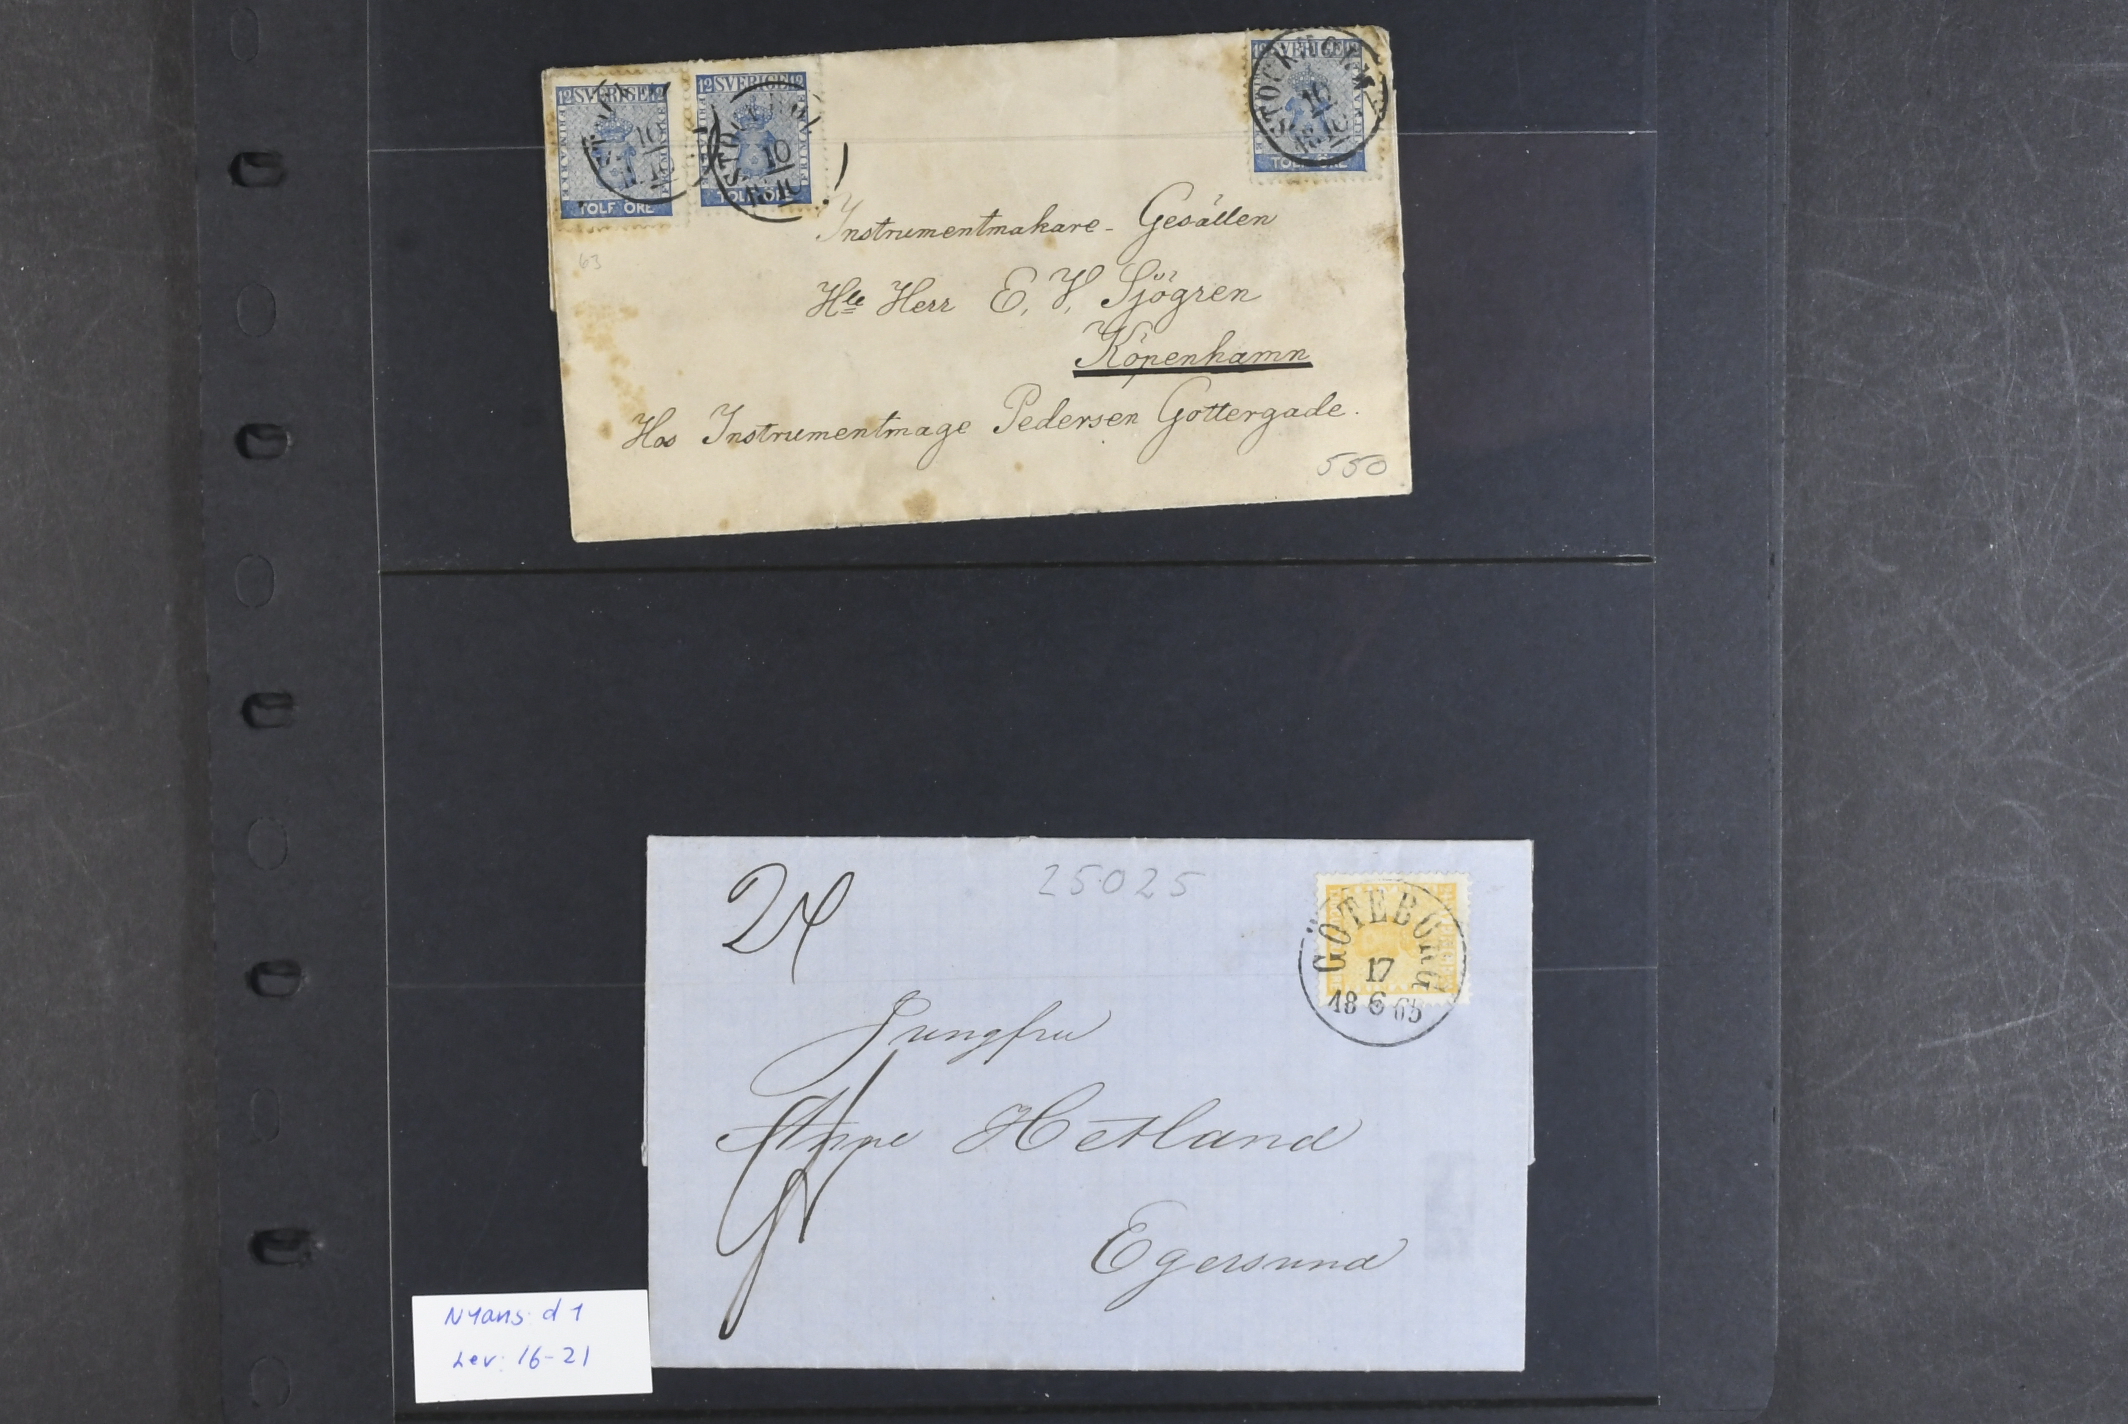 12 SVERIGE 12
TOLF ÖRE
10
10
12 SVERIGE 12
TOLF ÖRE
10
10
12 SVERIGE 12
TOLF ÖRE
STOCKHOLM
10
10
Instrumentmakare - Gesällen
Herr E. V. Sjögren
Köpenhamn
Hos Instrumentmage Pedersen Gottergade.
63
550
24
25025
GÖTEBORG
17
18 6 65
Jungfru
Hetland
Egersund
Nyans: d 1
Lev: 16-21